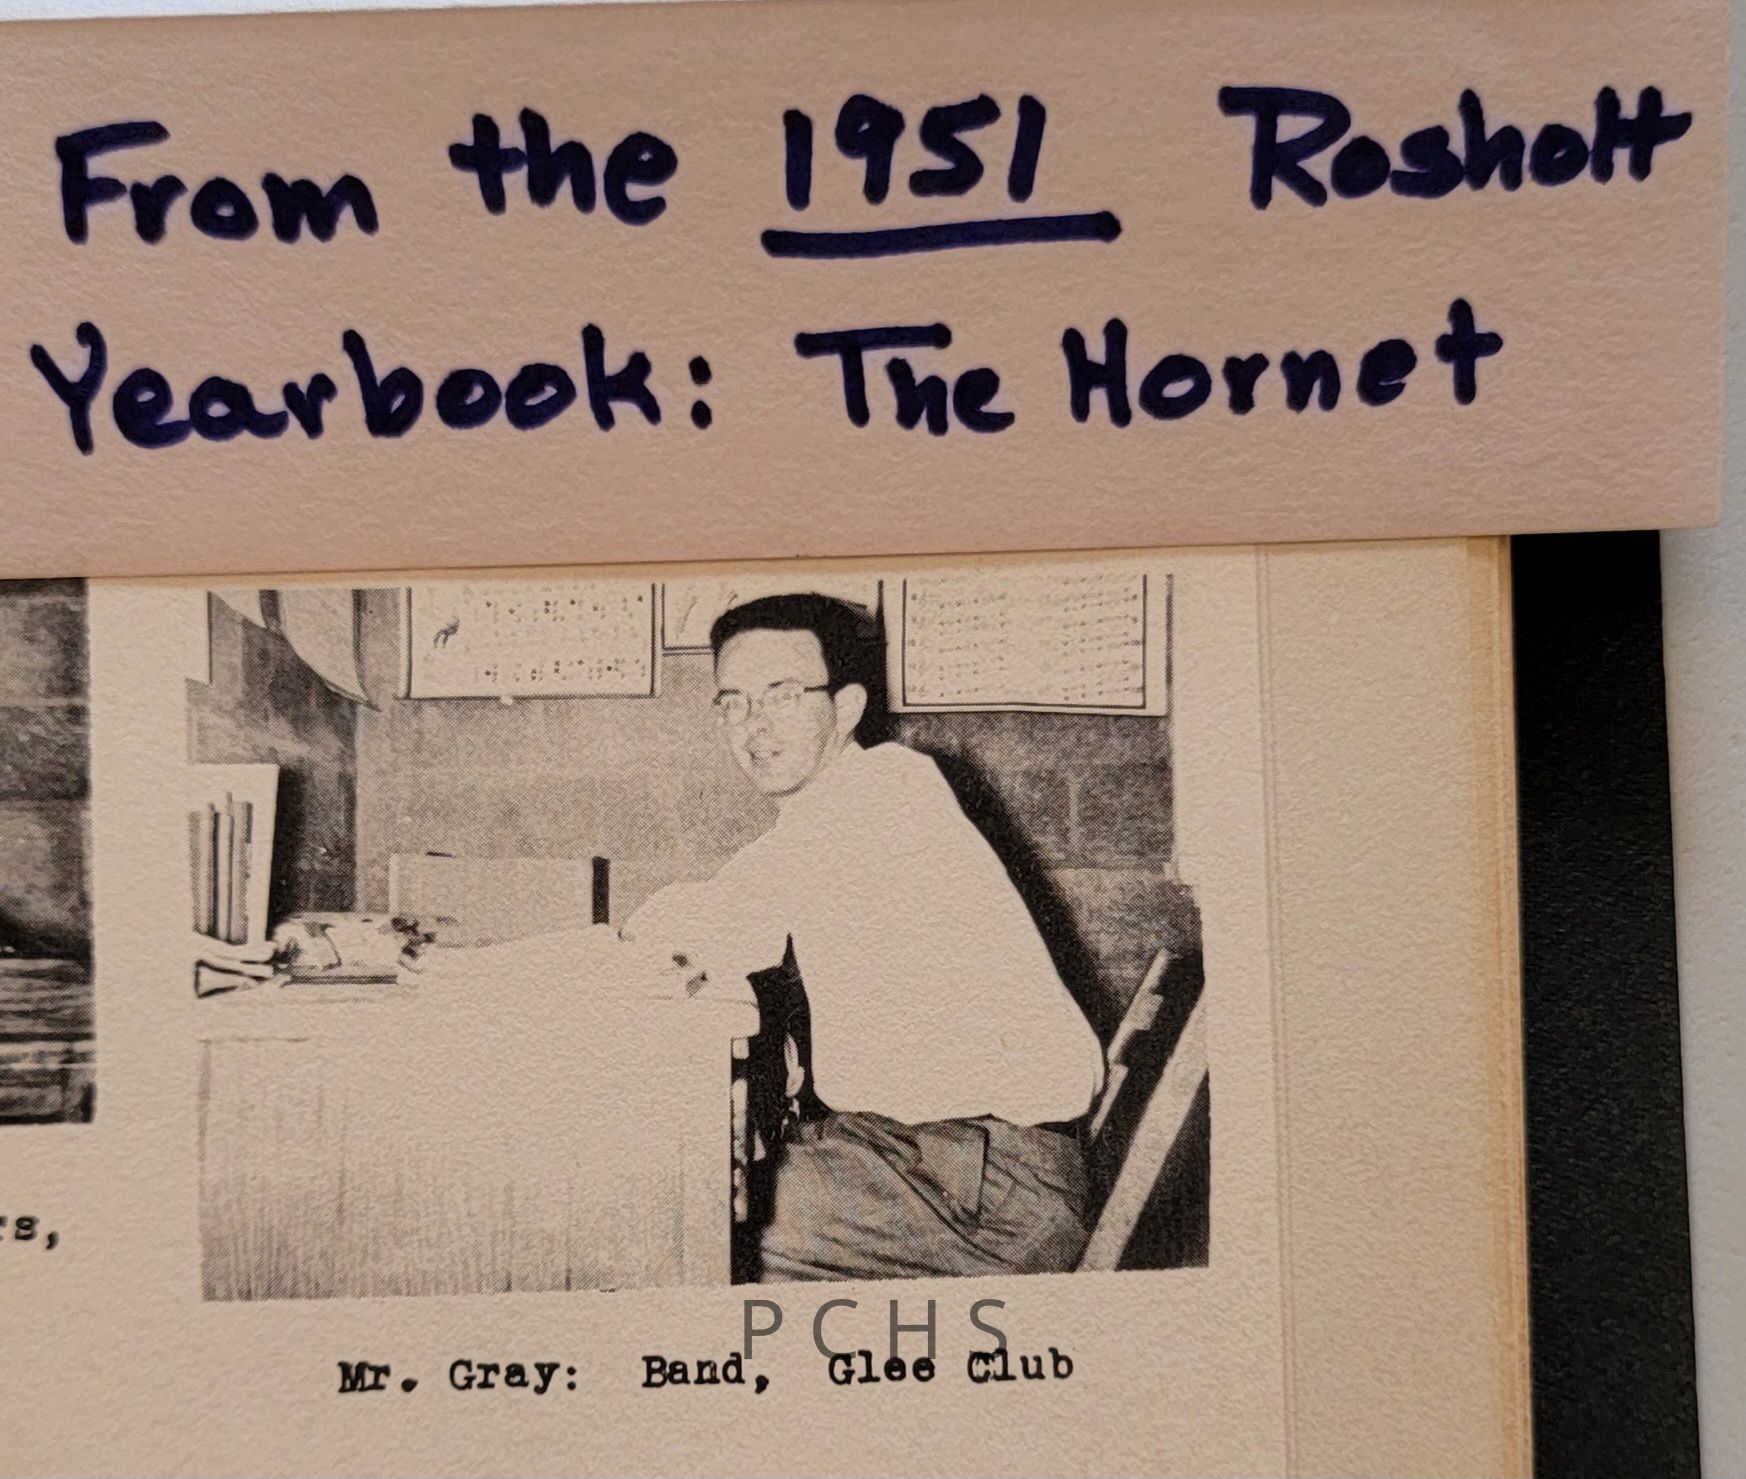 From the 1951 Rosholt
Yearbook: The Hornet
rs,
PCHS
Mr. Gray: Band, Glee Club